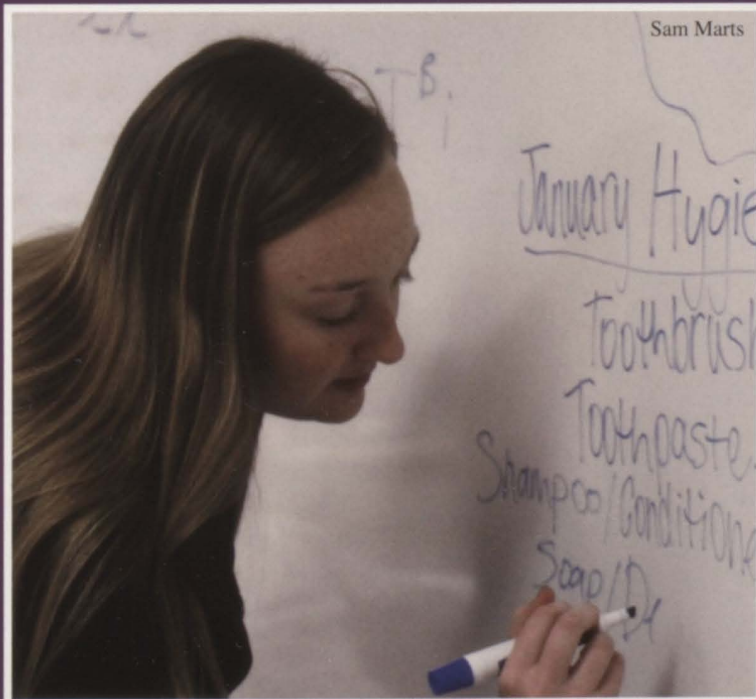 Sam Marts
January Hygie
Toothbrush
Toothpaste
Shampoo/Conditione
Soap/De